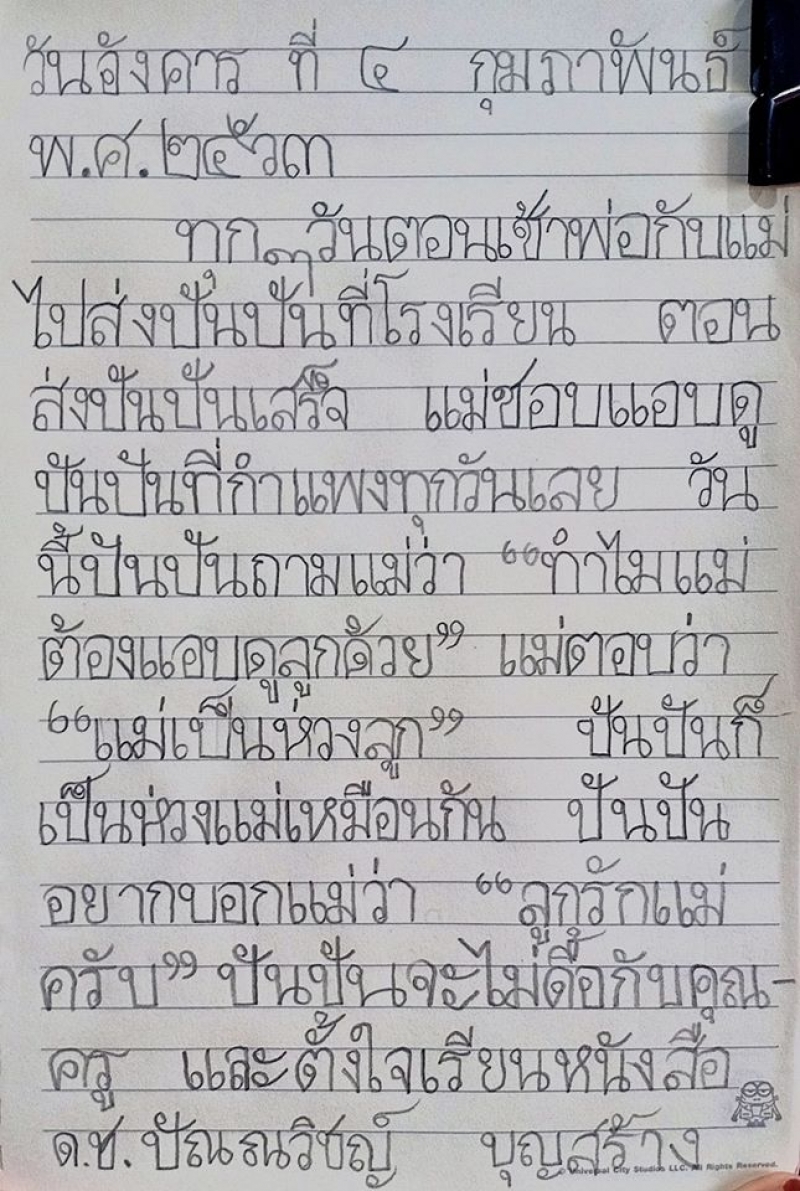 วันอังคาร ที่ ๔ กุมภาพันธ์
พ.ศ.๒๕๖๓
ทกๆวันตอนเช้าพ่อกับแม่
ไปส่งปันปันที่โรงเรียน ตอน
ส่งปันปันเสร็จ แม่ชอบแอบดู
ปันปันที่กำแพงทุกวันเลย วัน
นี้ปันปันถามแม่ว่า “ทำไมแม่
ต้องแอบดูลูกด้วย” แม่ตอบว่า
“แม่เป็นห่วงลูก” ปันปันก็
เป็นห่วงแม่เหมือนกัน ปันปัน
อยากบอกแม่ว่า “ลูกรักแม่
ครับ” ปันปันจะไม่ดื้อกับคุณ-
ครู และตั้งใจเรียนหนังสือ
ด.ช.ปัณณวิชญ์ บุญสร้าง
© Universal City Studios LLC. All Rights Reserved.